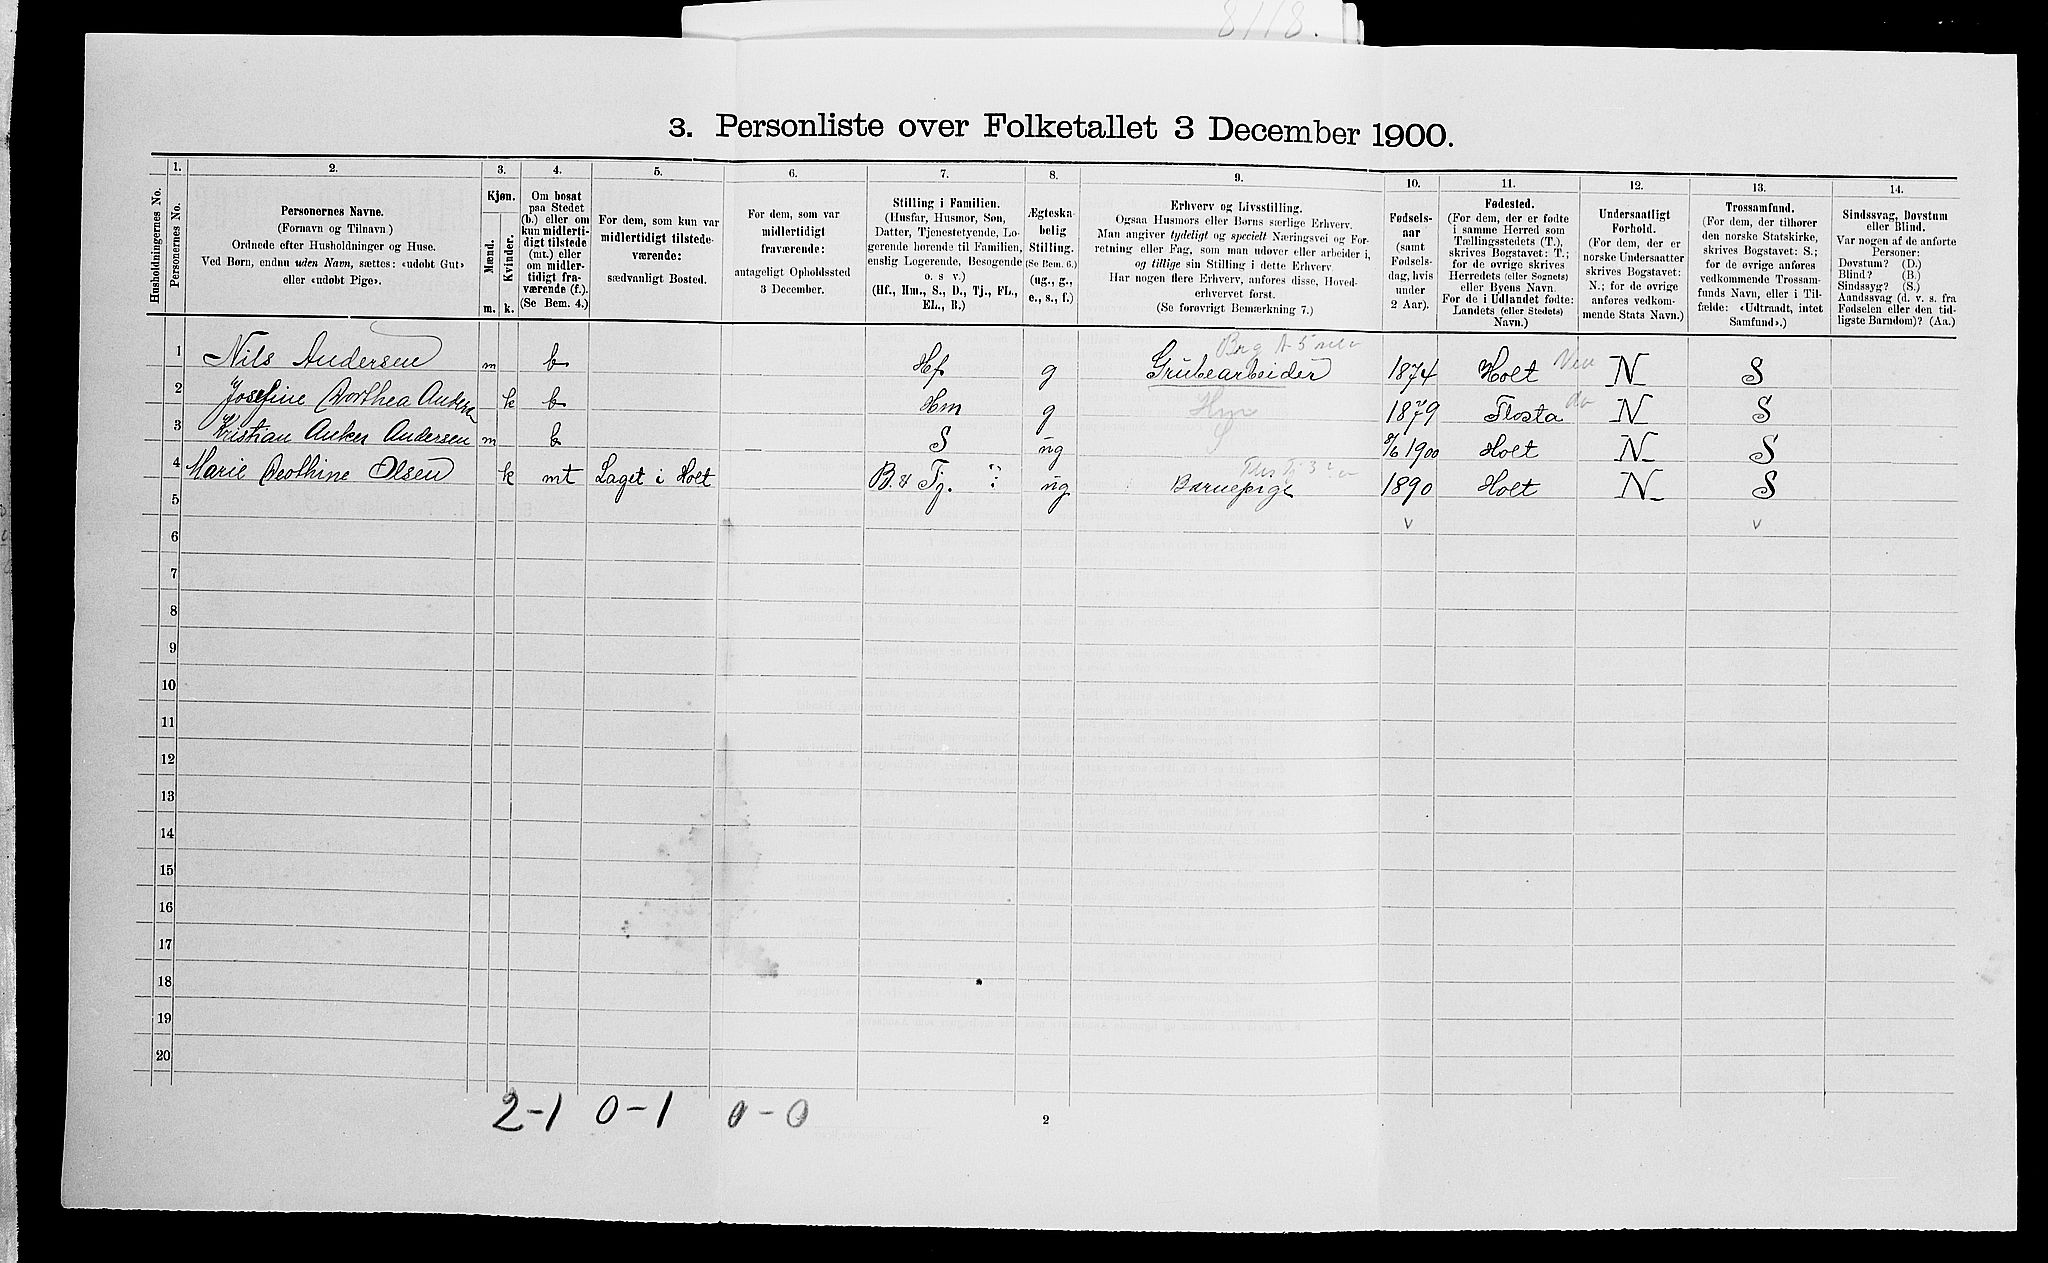 8118.
3. Personliste over Folketallet 3 December 1900.
Husholdningernes No.
1.
Personernes No.
2.
Personernes Navne.
(Fornavn og Tilnavn)
Ordnede efter Husholdninger og Huse.
Ved Børn, endnu uden Navn, sættes: «udøbt Gut»
eller «udøbt Pige».
3.
Kjøn.
Mænd.
Kvinder.
m. k.
4.
Om bosat
paa Stedet
(b.) eller om
kun midlerti-
digt tilstede
(mt.) eller
om midler-
tidigt fra-
værende (f.).
(Se Bem. 4.)
5.
For dem, som kun var
midlertidigt tilstede-
værende:
sædvanligt Bosted.
6.
For dem, som var
midlertidigt
fraværende:
antageligt Opholdssted
3 December.
7.
Stilling i Familien.
(Husfar, Husmor, Søn,
Datter, Tjenestetyende, Lo-
gerende hørende til Familien,
enslig Logerende, Besøgende
o. s v.)
(Hf., Hm., S., D., Tj., FL.,
EL., B.)
8.
Ægteska-
belig
Stilling.
(Se Bem. 6.)
(ug., g.,
e., s., f.)
9.
Erhverv og Livsstilling.
Ogsaa Husmors eller Børns særlige Erhverv.
Man angiver tydeligt og specielt Næringsvei og For-
retning eller Fag, som man udøver eller arbeider i,
og tillige sin Stilling i dette Erhverv.
Har nogen flere Erhverv, anføres disse, Hoved-
erhvervet først.
(Se forøvrigt Bemærkning 7.)
10.
Fødsels-
aar
(samt
Fødsels-
dag, hvis
under
2 Aar).
11.
Fødested.
(For dem, der er fødte
i samme Herred som
Tællingsstedets (T.),
skrives Bogstavet: T.;
for de øvrige skrives
Herredets (eller Sognets)
eller Byens Navn.
For de i Udlandet fødte:
Landets (eller Stedets)
Navn.)
12.
Undersaatligt
Forhold.
(For dem, der er
norske Undersaatter
skrives Bogstavet:
N.; for de øvrige
anføres vedkom-
mende Stats Navn.)
13.
Trossamfund.
(For dem, der tilhører
den norske Statskirke,
skrives Bogstavet: S.;
for de øvrige anføres
vedkommende Trossam-
funds Navn, eller i Til-
fælde: «Udtraadt, intet
Samfund».)
14.
Sindssvag, Døvstum
eller Blind.
Var nogen af de anførte
Personer:
Døvstum? (D.)
Blind? (B.)
Sindssyg? (S.)
Aandssvag (d. v. s. fra
Fødselen eller den tid-
ligste Barndom)? (Aa.)
1 Nils Andersen m b Hf g Grubearbeider 1874 Holt N S
2 Josefine Dorthea Andersen k b Hm g Hm 1879 Flosta do N S
3 Kristian Anker Andersen m b S ug S 8/6 1900 Holt N S
4 Marie Deothine Olsen k mt Laget i Holt B. & Tj. ug Barnepige 1890 Holt N S
5
6
7
8
9
10
11
12
13
14
15
16
17
18
19
20
2-1 0-1 0-0
2